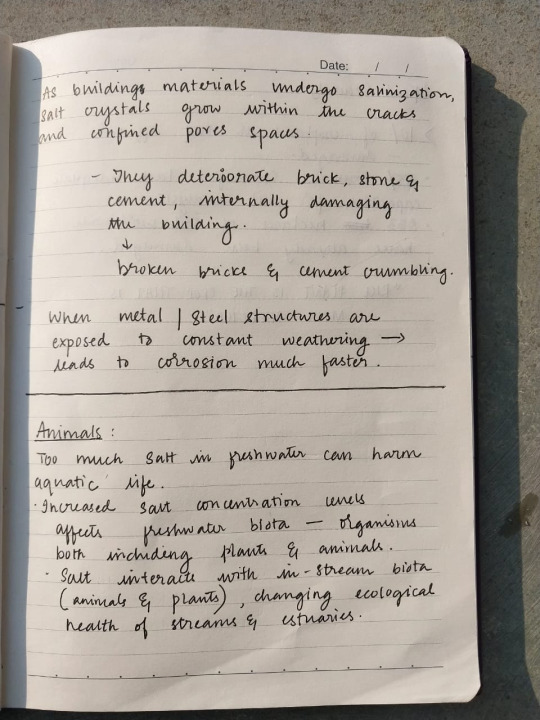 Date: / /
As buildings materials undergo salinization,
salt crystals grow within the cracks
and confined pores spaces.
- They deteriorate brick, stone &
cement, internally damaging
the building.
↓
broken bricks & cement crumbling.
When metal / steel structures are
exposed to constant weathering →
leads to corrosion much faster.
Animals :
Too much salt in freshwater can harm
aquatic life.
· Increased salt concentration levels
affects freshwater biota — organisms
both including plants & animals.
· Salt interact with in-stream biota
(animals & plants), changing ecological
health of streams & estuaries.